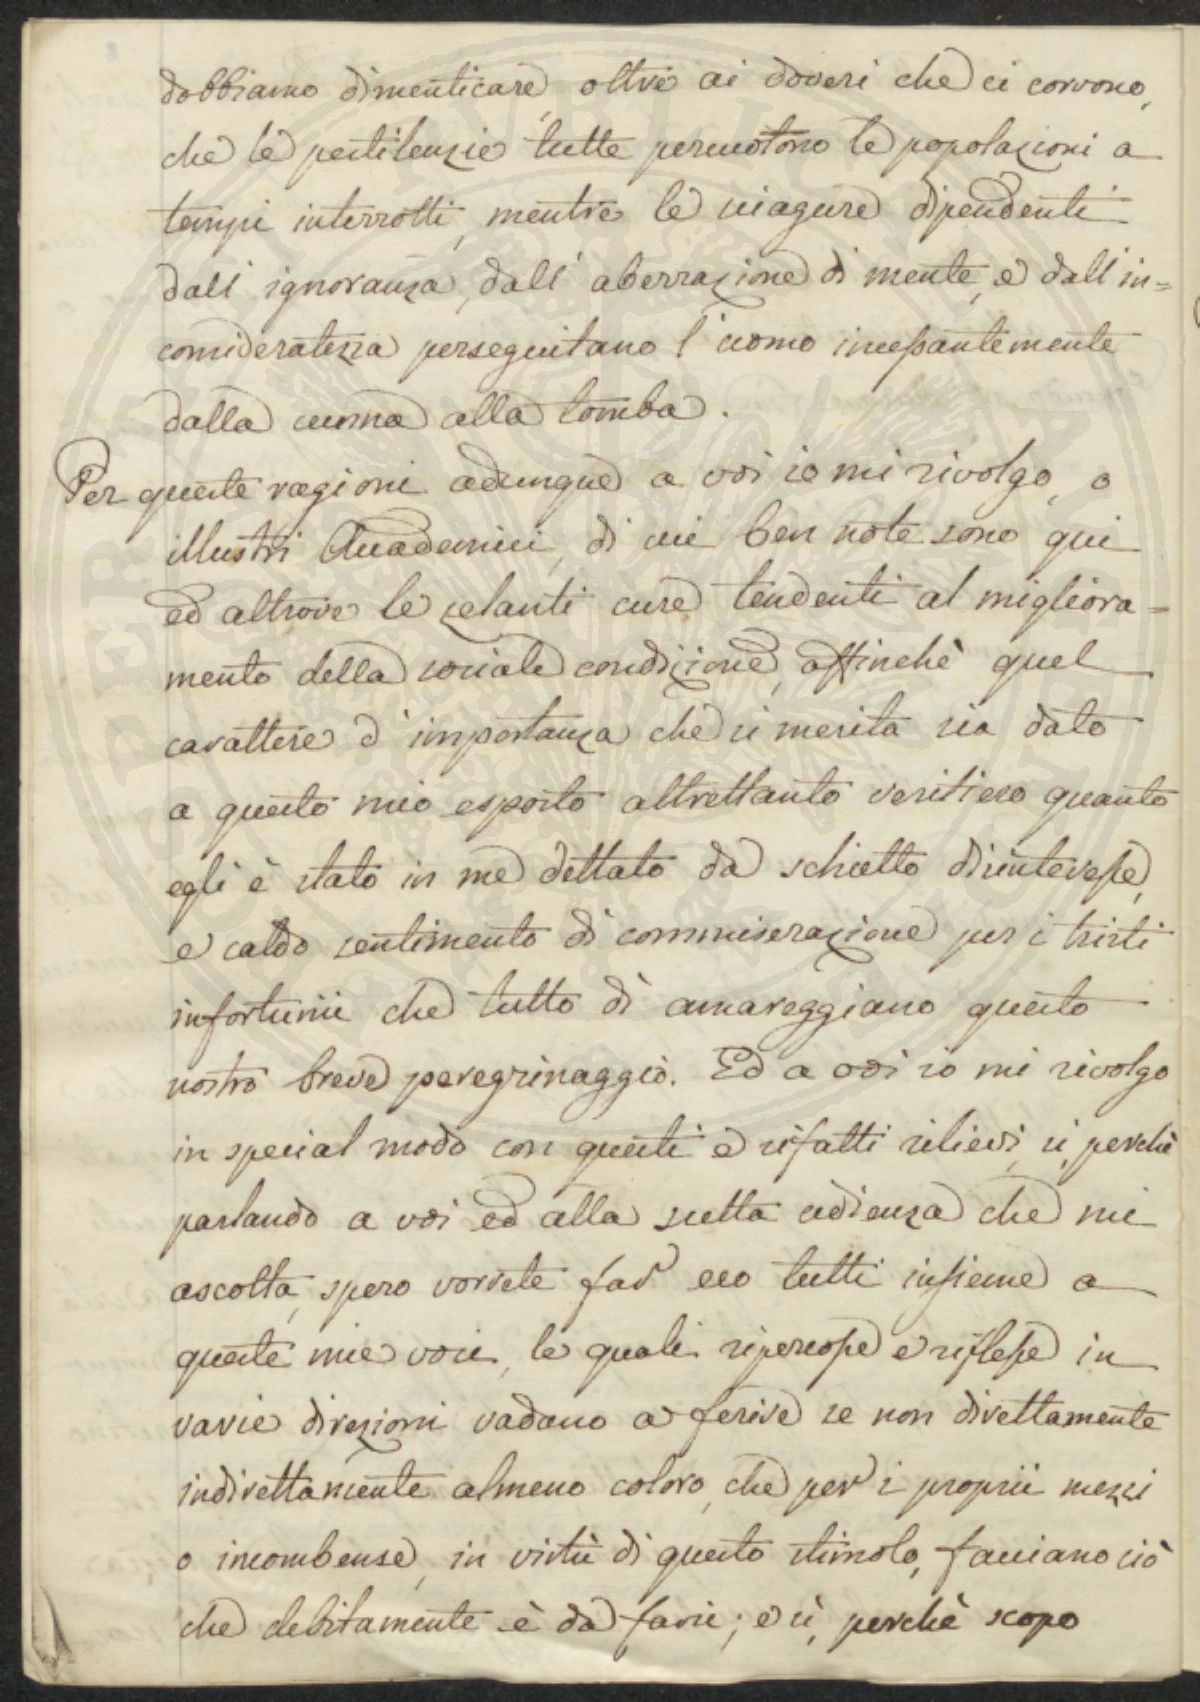 dobbiamo dimenticare, oltre ai doveri che ci corrono,
che le pestilenzie tutte percuotono le popolazioni a
tempi interrotti, mentre le sciagure dipendenti
dall' ignoranza, dall' aberrazione di mente, e dall' in=
consideratezza perseguitano l' uomo incessantemente
dalla cuna alla tomba.
Per queste ragioni adunque a voi io mi rivolgo, o
illustri Accademici, di cui ben note sono qui
ed altrove le zelanti cure tendenti al migliora=
mento della sociale condizione, affinchè quel
carattere d' importanza che si merita sia dato
a questo mio esposto altrettanto veritiero quanto
egli è stato in me dettato da schietto disinteresse,
e caldo sentimento di commiserazione per i tristi
infortunii che tutto dì amareggiano questo
nostro breve peregrinaggio. Ed a voi io mi rivolgo
in special modo con questi e sifatti rilievi, sì, perchè
parlando a voi ed alla scelta udienza che mi
ascolta, spero vorrete far eco tutti insieme a
queste mie voci, le quali ripercosse e riflesse in
varie direzioni vadano a ferire se non direttamente
indirettamente almeno coloro, che per i proprii mezzi
o incombense, in virtù di questo stimolo, facciano ciò
che debitamente è da farsi; e sì, perchè scopo